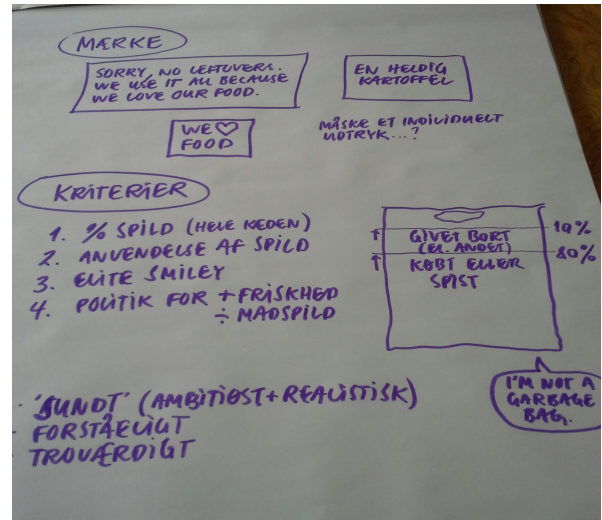 MÆRKE
SORRY, NO LEFTOVERS.
WE USE IT ALL BECAUSE
WE LOVE OUR FOOD.
EN HELDIG
KARTOFFEL
WE ♡
FOOD
MÅSKE ET INDIVIDUELT
UDTRYK...?
KRITERIER
1. % SPILD (HELE KEDEN)
2. ANVENDELSE AF SPILD
3. ELITE SMILEY
4. POLITIK FOR + FRISKHED
÷ MADSPILD
↑ GIVET BORT
(EL. ANDET)
↑ KØBT ELLER
SPIST
10%
80%
I'M NOT A
GARBAGE
BAG.
- 'SUNDT' (AMBITIØST + REALISTISK)
- FORSTÅELIGT
- TROVÆRDIGT